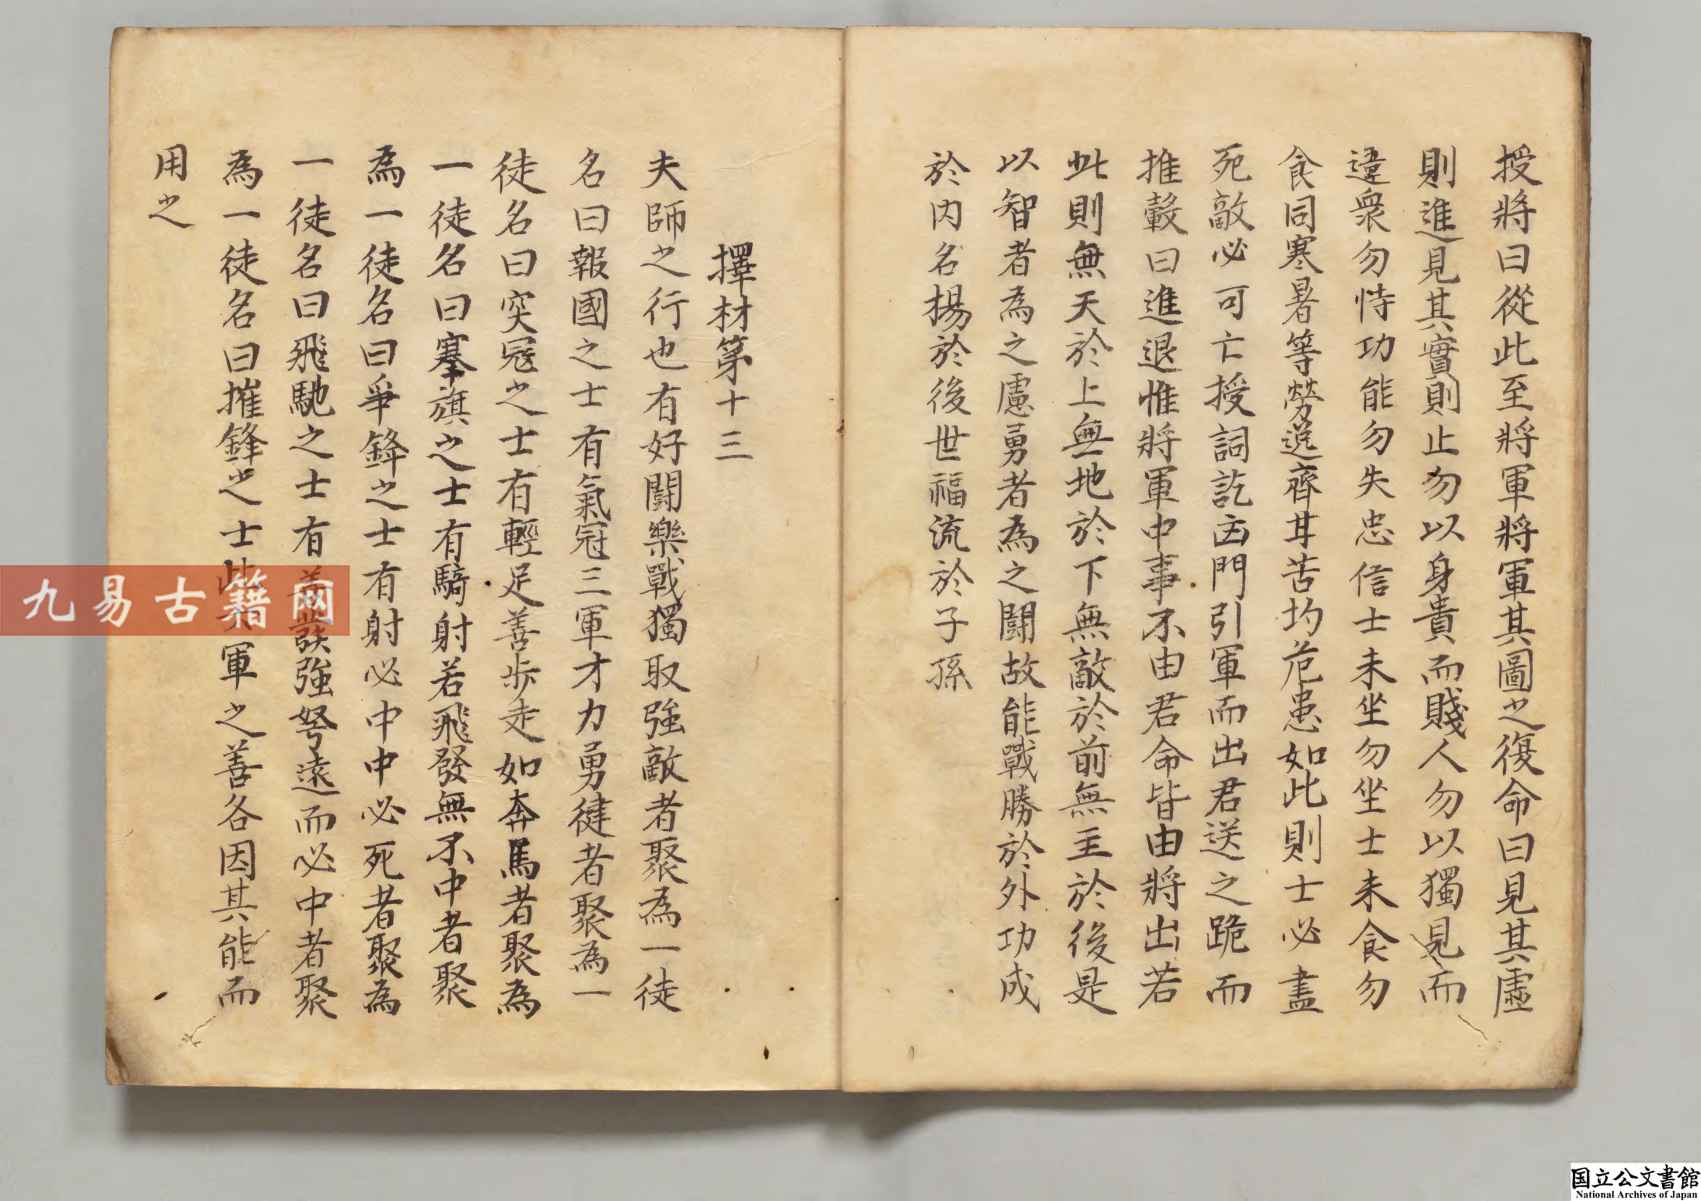 授將曰從此至將軍將軍其圖之復命曰見其虛
則進見其實則止勿以身貴而賤人勿以獨見而
違衆勿恃功能勿失忠信士未坐勿坐士未食勿
食同寒暑等勞逸齊甘苦均危患如此則士必盡
死敵必可亡授詞訖凶門引軍而出君送之跪而
推轂曰進退惟將軍中事不由君命皆由將出若
此則無天於上無地於下無敵於前無主於後是
以智者為之慮勇者為之鬪故能戰勝於外功成
於內名揚於後世福流於子孫
擇材第十三
夫師之行也有好鬪樂戰獨取強敵者聚為一徒
名曰報國之士有氣冠三軍才力勇健者聚為一
徒名曰突冦之士有輕足善步走如奔馬者聚為
一徒名曰搴旗之士有騎射若飛發無不中者聚
為一徒名曰爭鋒之士有射必中中必死者聚為
一徒名曰飛馳之士有善發強弩遠而必中者聚
為一徒名曰摧鋒之士此軍之善各因其能而
用之
九易古籍网
国立公文書館
National Archives of Japan